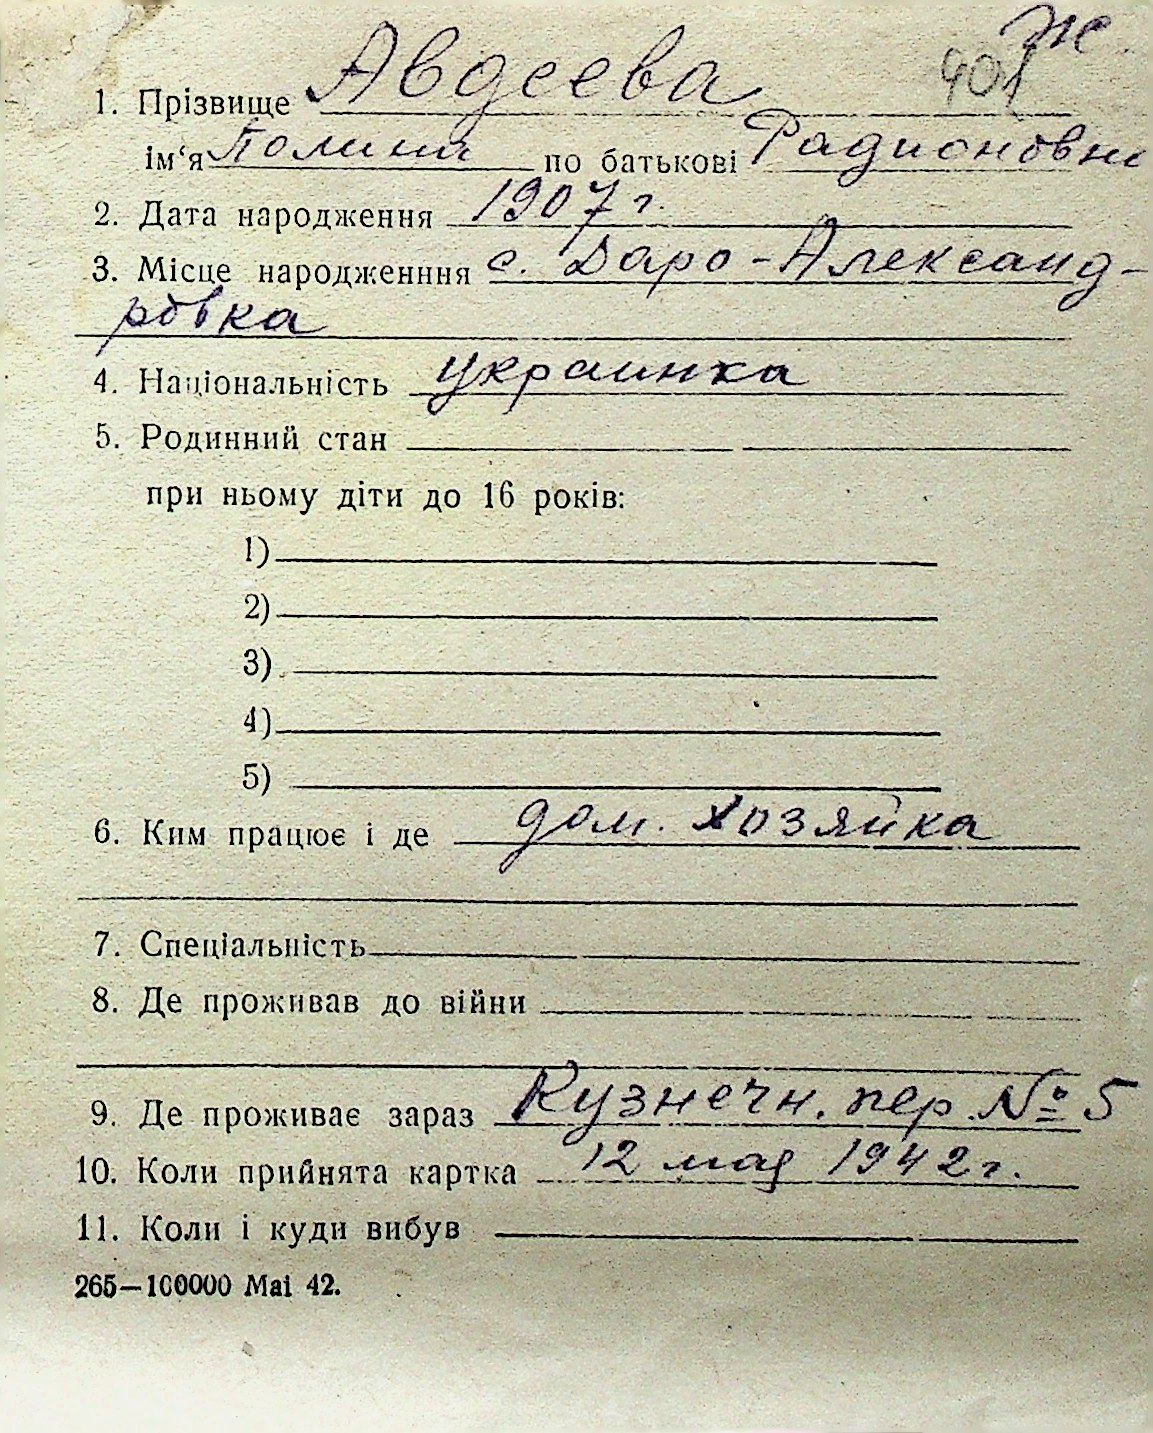 Ж
401
1. Прізвище Авдеева
ім‘я Полина по батькові Радионовна
2. Дата народження 1907 г.
3. Місце народженння с. Даро-Александ-
ровка
4. Національність украинка
5. Родинний стан
при ньому діти до 16 років:
1)
2)
3)
4)
5)
6. Ким працює і де дом. хозяйка
7. Спеціальність
8. Де проживав до війни
9. Де проживає зараз Кузнечн. пер. № 5
10. Коли прийнята картка 12 мая 1942 г.
11. Коли і куди вибув
265—100000 Mai 42.